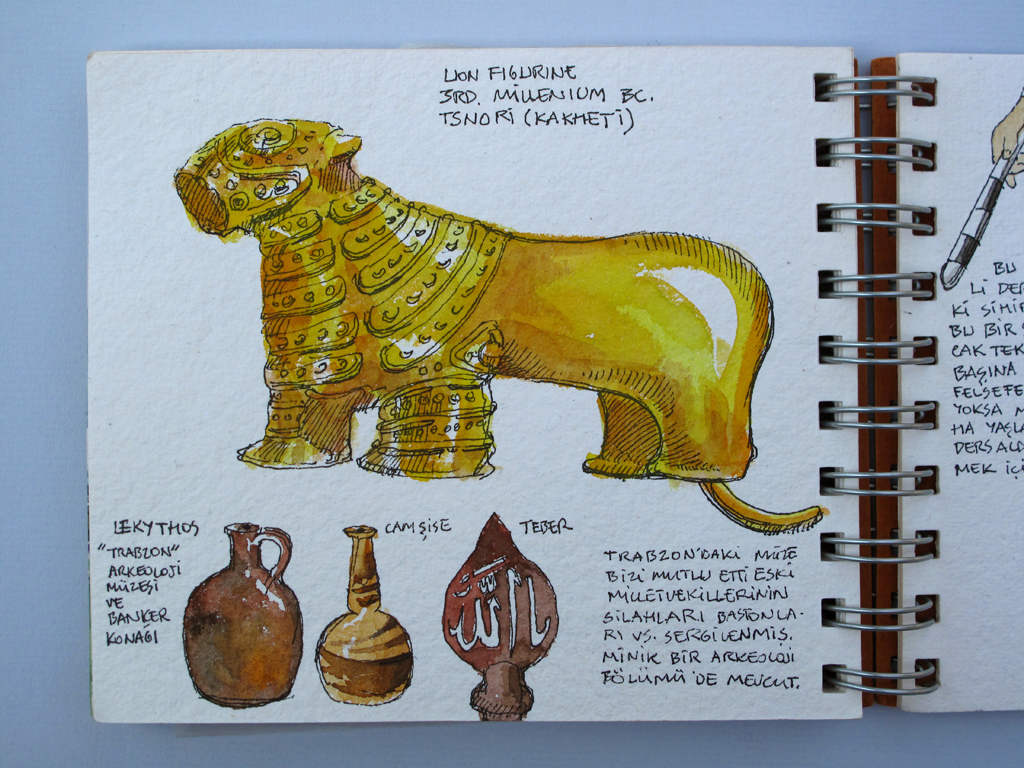 LION FIGURINE
3RD. MILLENIUM BC.
TSNORI (KAKHETI)
LEKYTHOS
"TRABZON"
ARKEOLOJI
MÜZESİ
VE
BANKER
KONAĞI
CAM ŞİSE
TEBER
يا الله
TRABZON'DAKİ MÜZE
BİZİ MUTLU ETTİ ESKİ
MİLLETVEKİLLERİNİN
SİLAHLARI BASTONLA-
RI VS. SERGİLENMİŞ.
MİNİK BİR ARKEOLOJİ
BÖLÜMÜ DE MEVCUT.
BU
Lİ DER
Kİ SİHİR
BU BİR
CAK TEK
BAŞINA
FELSEFE
YOKSA
HA YAŞLA
DERS ALD
MEK İÇİ